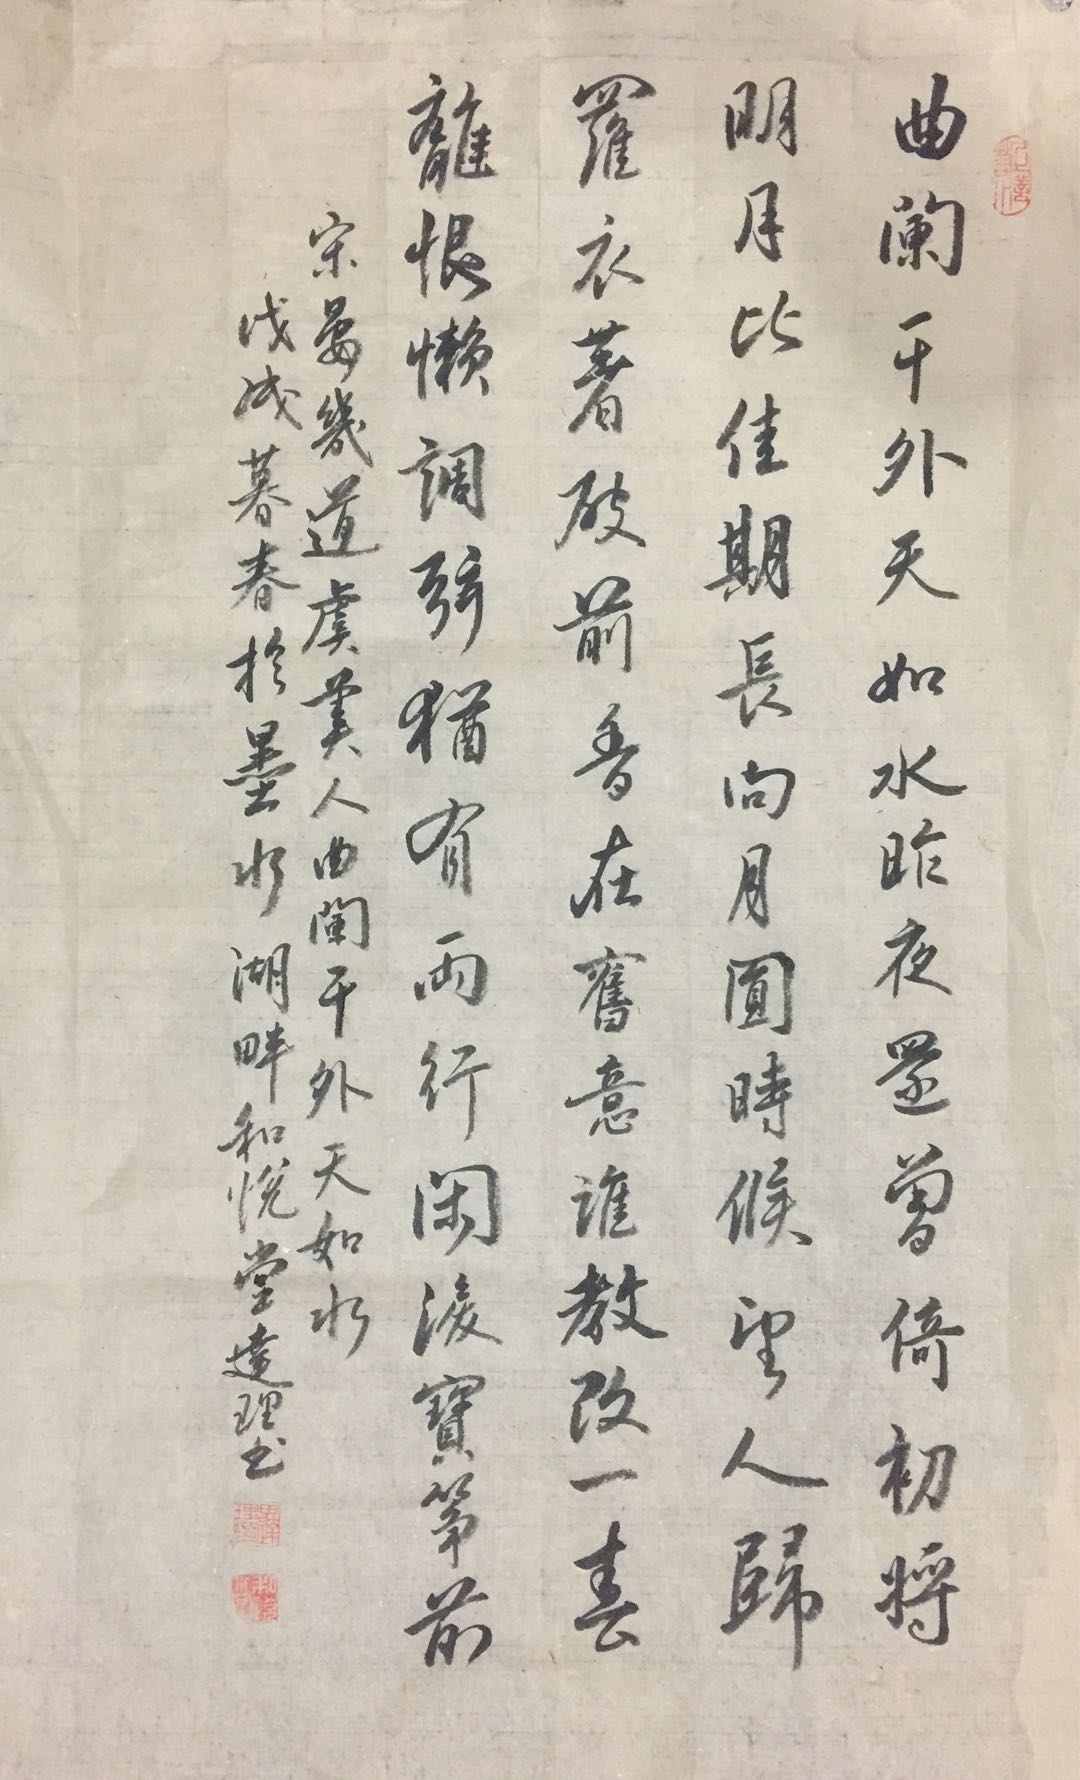 曲闌干外天如水昨夜還曾倚初將
明月比佳期長向月圓時候望人歸
羅衣著破前香在舊意誰教改一春
離恨懶調弦猶有兩行閑淚寶筝前
宋晏幾道虞美人曲闌干外天如水
戊戌暮春於墨水湖畔和悅堂達理書